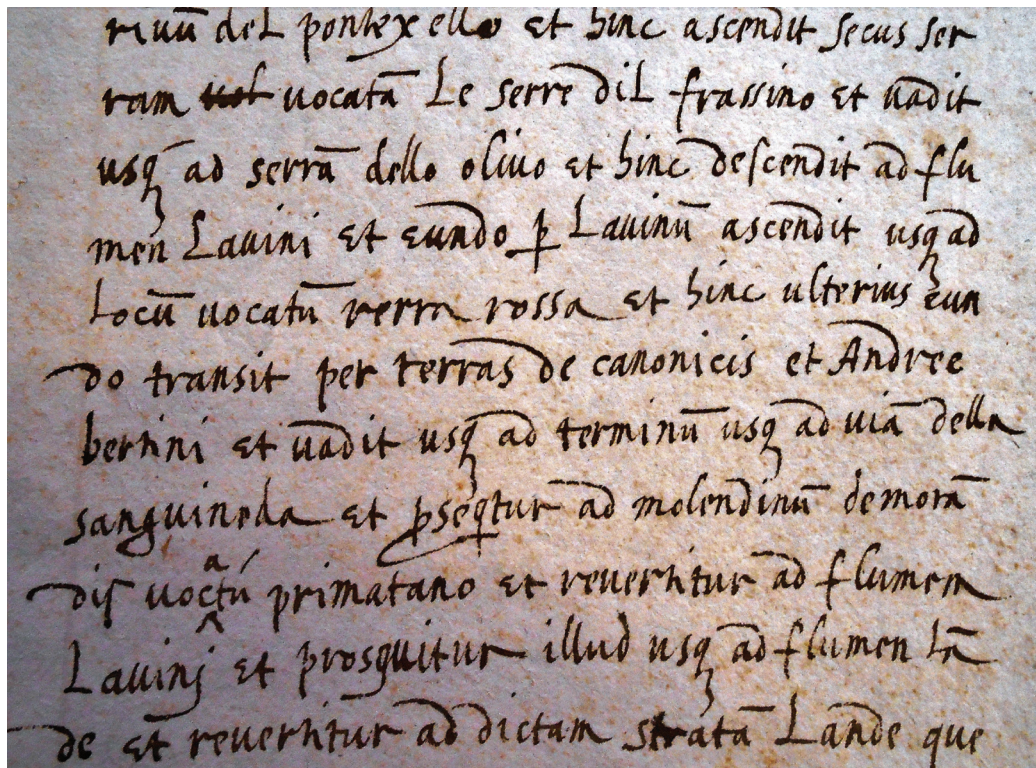 rivū del pontexello et hinc ascendit secus ser
ram vocatā Le serre dil frassino et vadit
usq ad serrā dello olivo et hinc descendit ad flu
men Lavini et eundo p Lavinū ascendit usq ad
Locū vocatū terra rossa et hinc ulterius eun
do transit per terras de canonicis et Andree
bertini et vadit usq ad terminū usq ad viā della
sanguineda et pseqtur ad molendinū demorā
dis vocatū primatano et revertitur ad flumen
Lavinj et prosquitur illud usq ad flumen Lā
de et revertitur ad dictam stratā Lande que